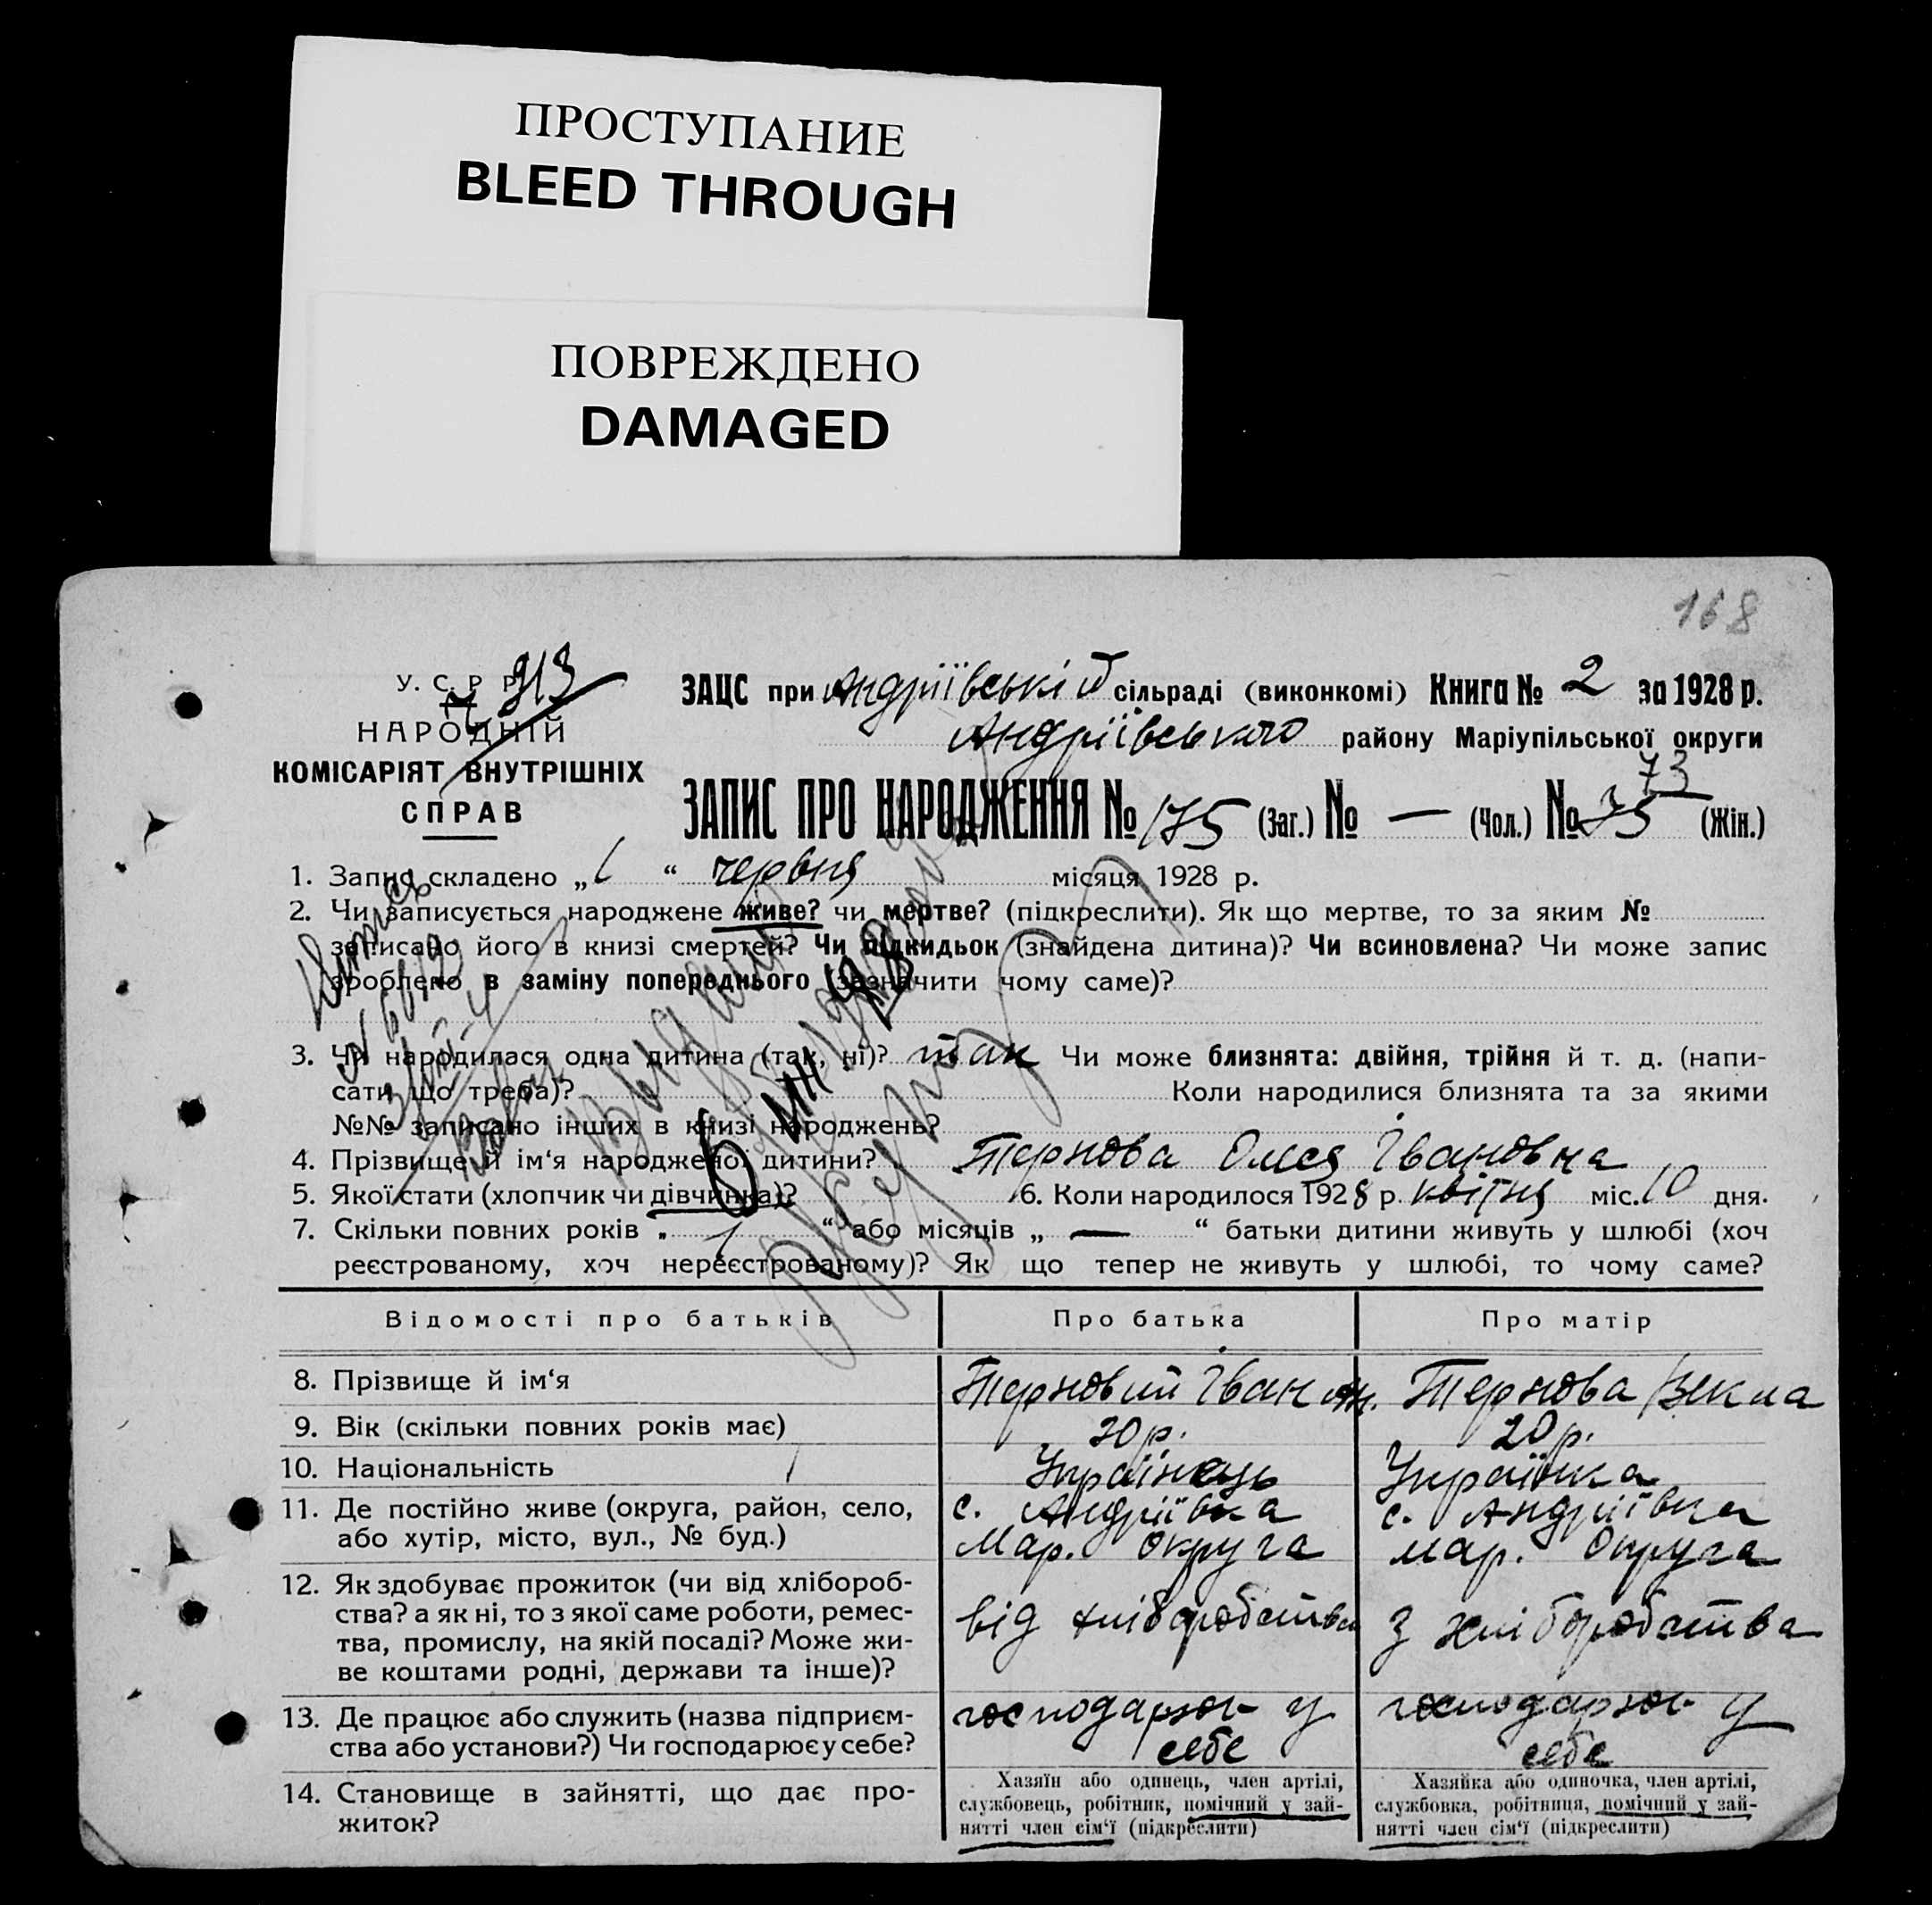 ПРОСТУПАНИЕ
BLEED THROUGH
ПОВРЕЖДЕНО
DAMAGED
168
У. С. Р. Р.
НАРОДНІЙ
КОМІСАРІЯТ ВНУТРІШНІХ
СПРАВ
ЗАЦС при Андріївській сільраді (виконкомі) Книга № 2 за 1928 р.
Андріївського району Маріупільської округи
ЗАПИС ПРО НАРОДЖЕННЯ № 175 (Заг.) № — (Чол.) № 73 (Жін.)
1. Запис складено „1“ червня місяця 1928 р.
2. Чи записується народжене живе? чи мертве? (підкреслити). Як що мертве, то за яким №
записано його в книзі смертей? Чи підкидьок (знайдена дитина)? Чи всиновлена? Чи може запис
зроблено в заміну попереднього (зазначити чому саме)?
3. Чи народилася одна дитина (так, ні)? так Чи може близнята: двійня, трійня й т. д. (напи-
сати що треба)? Коли народилися близнята та за якими
№№ записано інших в книзі народжень?
4. Прізвище й ім‘я народженої дитини? Тернова Олея Івановна
5. Якої стати (хлопчик чи дівчинка)? 6. Коли народилося 1928 р. квітня міс. 10 дня.
7. Скільки повних років „ 1 “ або місяців „ — “ батьки дитини живуть у шлюбі (хоч
реєстрованому, хоч нереєстрованому)? Як що тепер не живуть у шлюбі, то чому саме?
Відомості про батьків Про батька Про матір
8. Прізвище й ім‘я Терновий Іван Тернова
9. Вік (скільки повних років має) 20 р. 20 р.
10. Національність Українець Українка
11. Де постійно живе (округа, район, село, с. Андріївка с. Андріївка
або хутір, місто, вул., № буд.) Мар. округа мар. округа
12. Як здобуває прожиток (чи від хлібороб-
ства? а як ні, то з якої саме роботи, ремес- від хліборобства з хліборобства
тва, промислу, на якій посаді? Може жи-
ве коштами родні, держави та інше)?
13. Де працює або служить (назва підприєм- господарює у господарює у
ства або установи?) Чи господарює у себе? себе себе
14. Становище в зайнятті, що дає про-
житок?
Хазяїн або одинець, член артілі,
службовець, робітник, помічний у зай-
нятті член сім‘ї (підкреслити)
Хазяйка або одиночка, член артілі,
службовка, робітниця, помічний у зай-
нятті член сім‘ї (підкреслити)